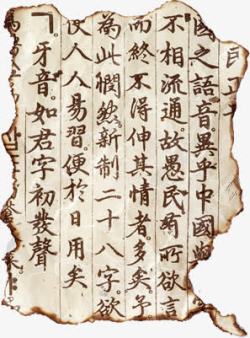 民正
國之語音。異乎中國
不相流通。故愚民有所欲言
而終不得伸其情者多矣。予
為此憫然新制二十八字欲
使人人易習。便於日用矣
ㄱ。牙音。如君字初發聲